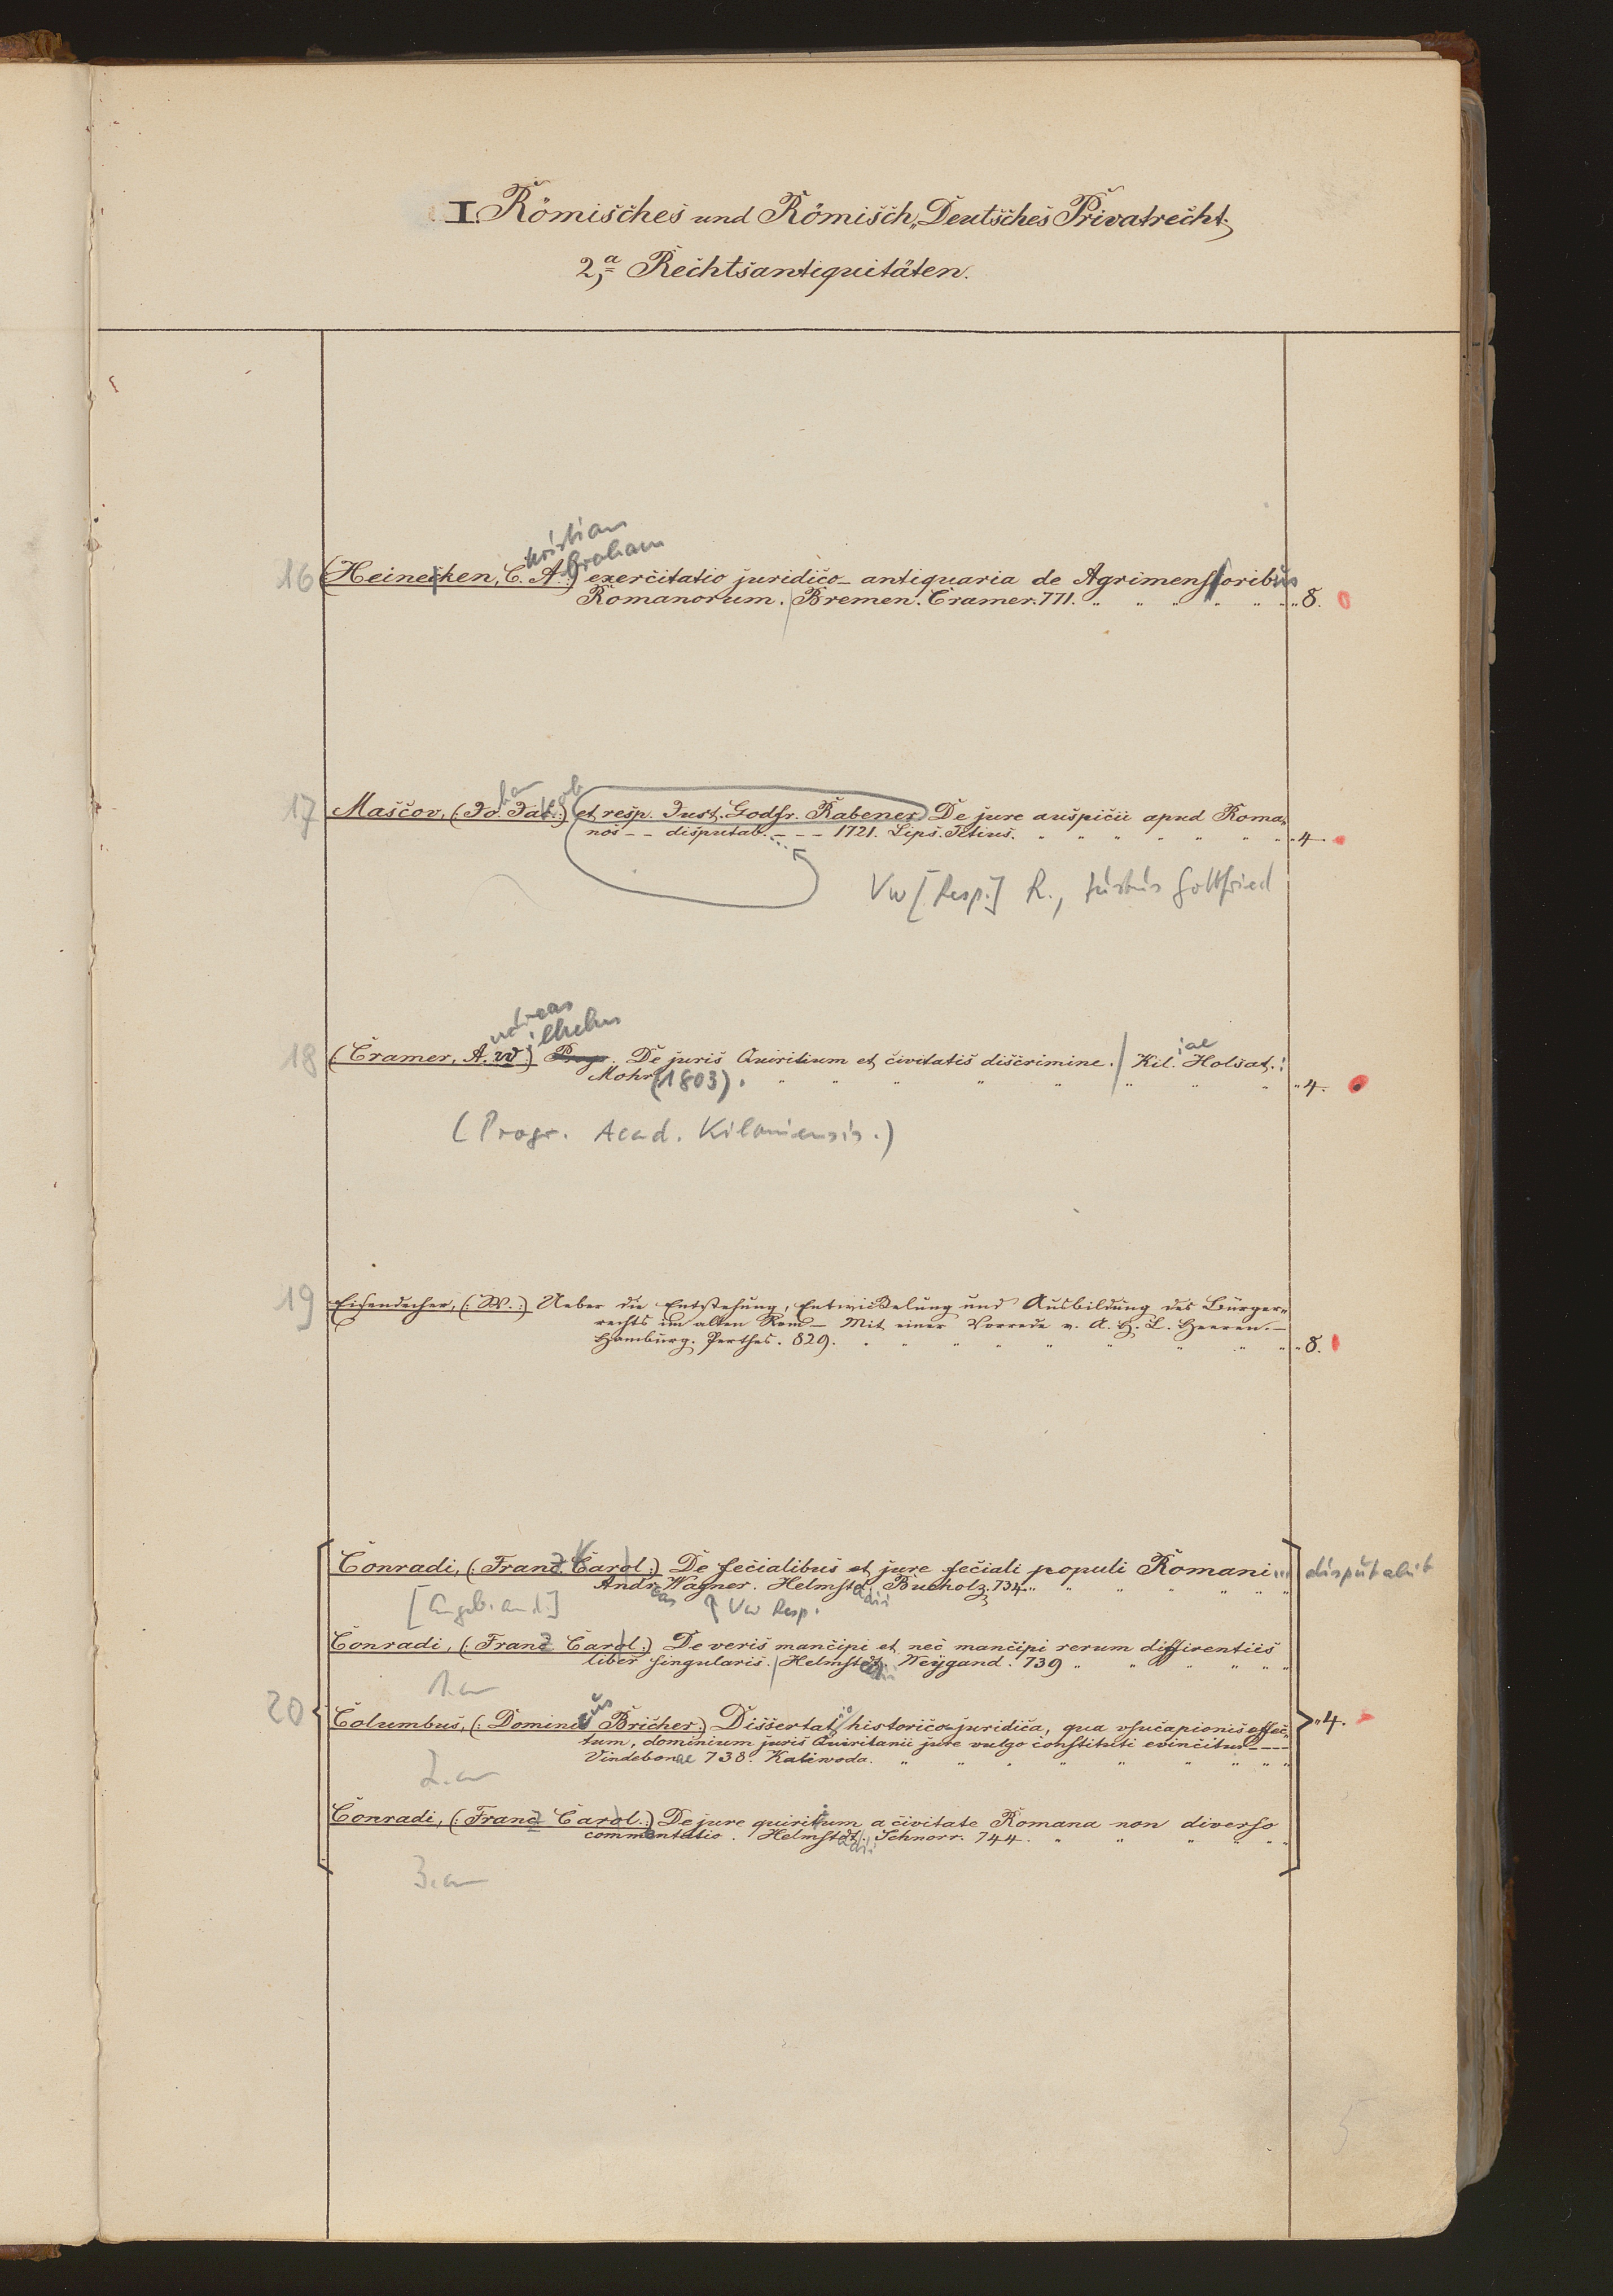 I. Römisches und Römisch„Deutsches Privatrecht.
2,a Rechtsantiquitäten.
christian
braham
16 (Heinecken, C. A.) exercitatio juridico- antiquaria de Agrimensoribus
Romanorum. Bremen. Cramer. 771. „ 8.
han
kob
17 Mascov, (: Jo. Jak.) et resp. Just. Godfr. Rabener De jure auspicii apud Roma„
nos - - disputab. - - - 1721. Lips. Titius. „ 4
Vw [Resp.] R., Justus Gottfried
ndreas
ilhelm
18 (Cramer, A. W.) Progr. De juris Quiritium et civitatis discrimine. Kil. iae Holsat.:
Mohr (1803). „ 4.
(Progr. Acad. Kiloniensis.)
19 Eisendecher, (: W. :) Ueber die Entstehung, Entwickelung und Ausbildung des Bürger„
rechts im alten Rom - Mit einer Vorrede v. A. H. L. Heeren. -
Hamburg. Perthes. 829. „ 8.
Conradi, (: Franz Carol :) De fecialibus et jure feciali populi Romani ... disputabit
Andreas Wagner. Helmstadii Bucholz 734. „
[Angeb. an d.] Vw Resp.
Conradi, (: Franz Carol :) De veris mancipi et nec mancipi rerum differentiis
liber singularis. Helmstadii Weygand. 739 „
1. an
20 Columbus, (: Dominicus Bricher.) Dissertatio historico-juridica, qua usucapionis effec„ „ 4.
tum, dominium juris Quiritanii jure vulgo constituti evincitur - - - -
Vindebonae 738. Kaliwoda. „
2. an
Conradi, (: Franz Carol.) De jure quiritium a civitate Romana non diverso
commentatio. Helmstadii Schnorr. 744. „
3. an
5